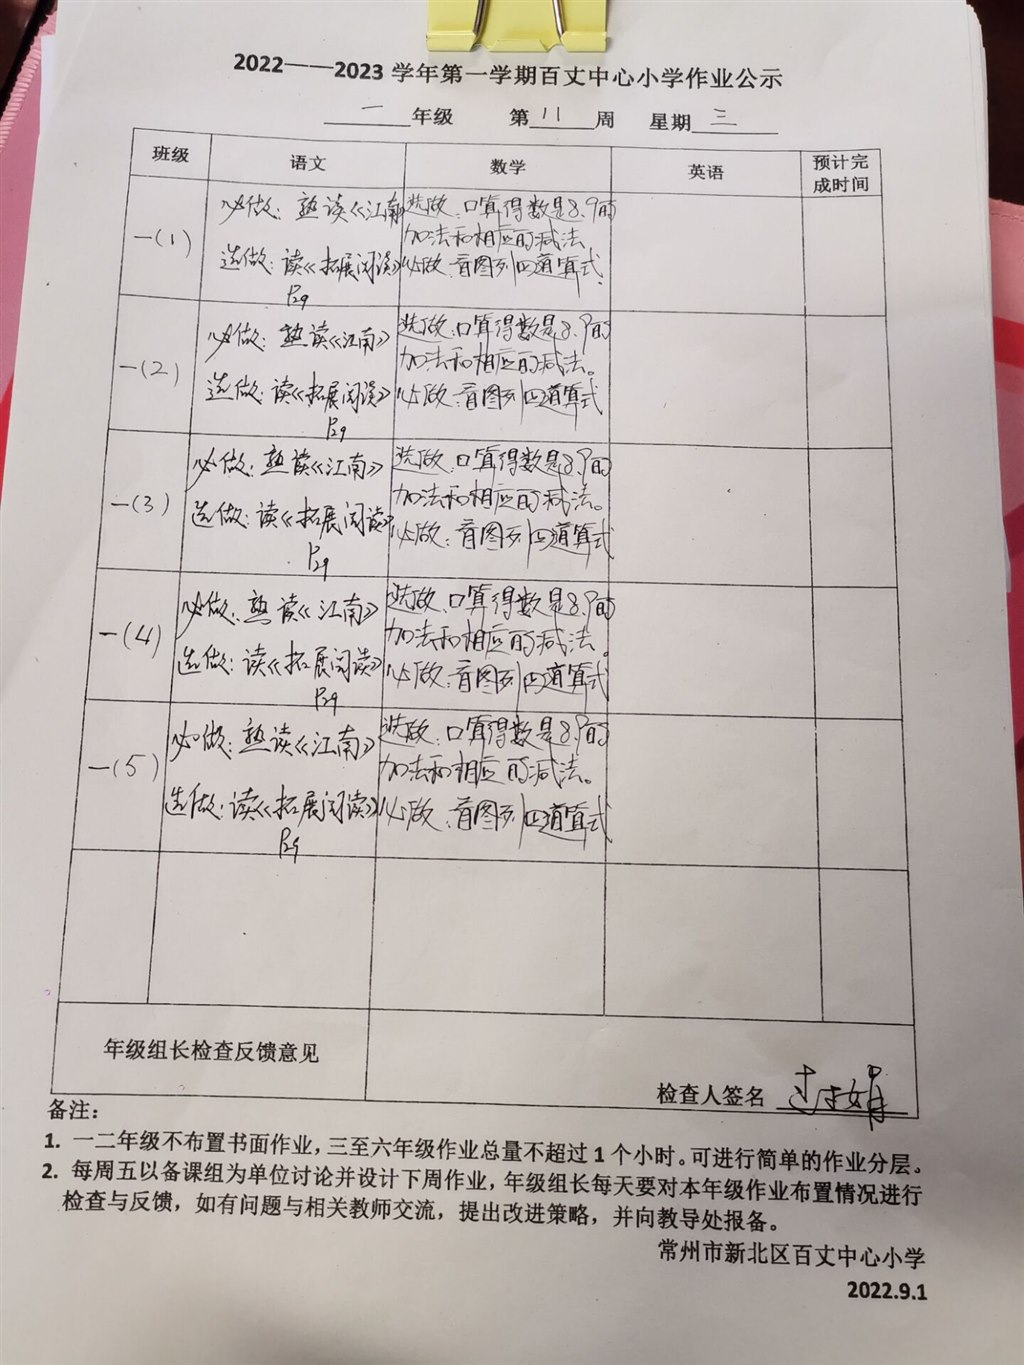 2022——2023 学年第一学期百丈中心小学作业公示
一 年级 第 11 周 星期 三
班级 语文 数学 英语 预计完成时间
一(1)
必做：熟读《江南》
选做：读《拓展阅读》
P29
选做：口算得数是8、9的
加法和相应的减法
必做：看图列四道算式
一(2)
必做：熟读《江南》
选做：读《拓展阅读》
P29
选做：口算得数是8、9的
加法和相应的减法。
必做：看图列四道算式
一(3)
必做：熟读《江南》
选做：读《拓展阅读》
P29
选做：口算得数是8、9的
加法和相应的减法。
必做：看图列四道算式
一(4)
必做：熟读《江南》
选做：读《拓展阅读》
P29
选做：口算得数是8、9的
加法和相应的减法。
必做：看图列四道算式
一(5)
必做：熟读《江南》
选做：读《拓展阅读》
P29
选做：口算得数是8、9的
加法和相应的减法。
必做：看图列四道算式
年级组长检查反馈意见
检查人签名
备注：
1. 一二年级不布置书面作业，三至六年级作业总量不超过 1 个小时。可进行简单的作业分层。
2. 每周五以备课组为单位讨论并设计下周作业，年级组长每天要对本年级作业布置情况进行
检查与反馈，如有问题与相关教师交流，提出改进策略，并向教导处报备。
常州市新北区百丈中心小学
2022.9.1